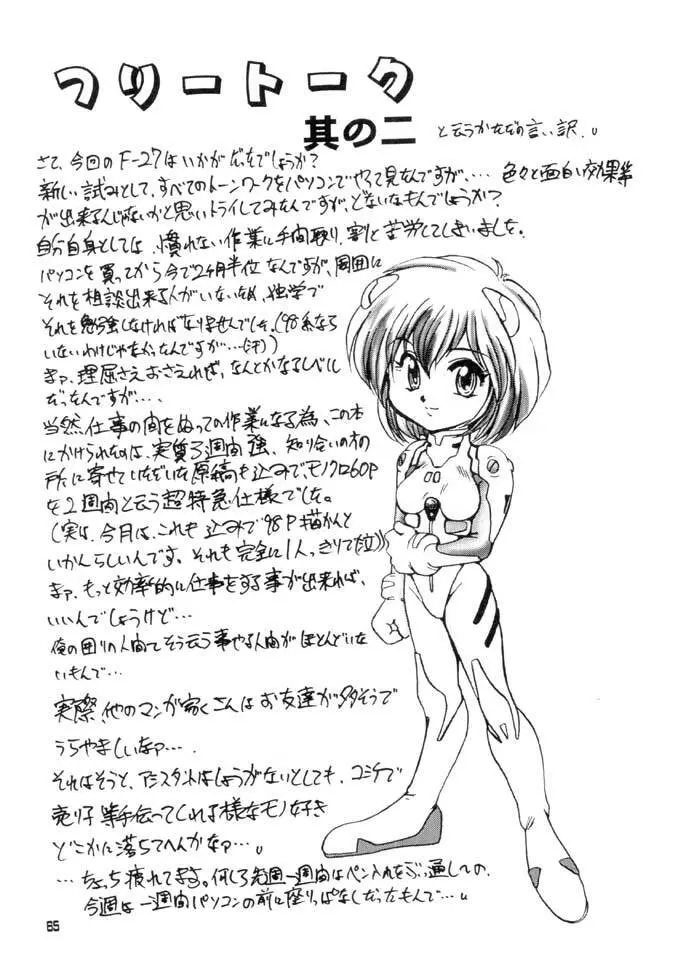 フリートーク
其の二
と云うかただの言い訳。
さて、今回のF-27はいかがだったでしょうか?
新しい試みとして、すべてのトーンワークをパソコンでやって見たんですが、… 色々と面白い効果等
が出来るんじゃないかと思いトライしてみたんですが、どないなもんでしょうか?
自分自身としては、慣れない作業に手間取り、割と苦労してしまいました。
パソコンを買ってから今で2ヶ月半位なんですが、周囲に
それを相談出来る人がいないため、独学で
それを勉強しなければなりませんでした。(98系なら
いないわけじゃなかったんですが…(汗))
まァ、理屈さえおさえれば、なんとかなるレベル
だったんですが…。
当然、仕事の間をぬっての作業になる為、この本
にかけられたのは、実質3週間強、知り合いの方の
所に寄せていただいた原稿も込みで、モノクロ60P
を2週間と云う超特急仕様でした。
(実は、今月は、これも込みで98P描かんと
いかんらしいんです。それも完全に1人っきりで(泣))
まァ、もっと効率的に仕事をする事が出来れば、
いいんでしょうけど…
俺の回りの人間てそう云う事やる人間がほとんどいな
いもんで…
実際、他のマンガ家くさんはお友達が多そうで
うらやましいなァ…。
それはそうと、アシスタントはしょうがないとしても、コミケで
売り子等手伝ってくれる様なモノ好き
どこかに落ちてへんかなァ…。
…ちょっち疲れてます。何しろ先週一週間はペン入れをぶっ通しでの、
今週は一週間パソコンの前に座りっぱなしだったもんで…。
65